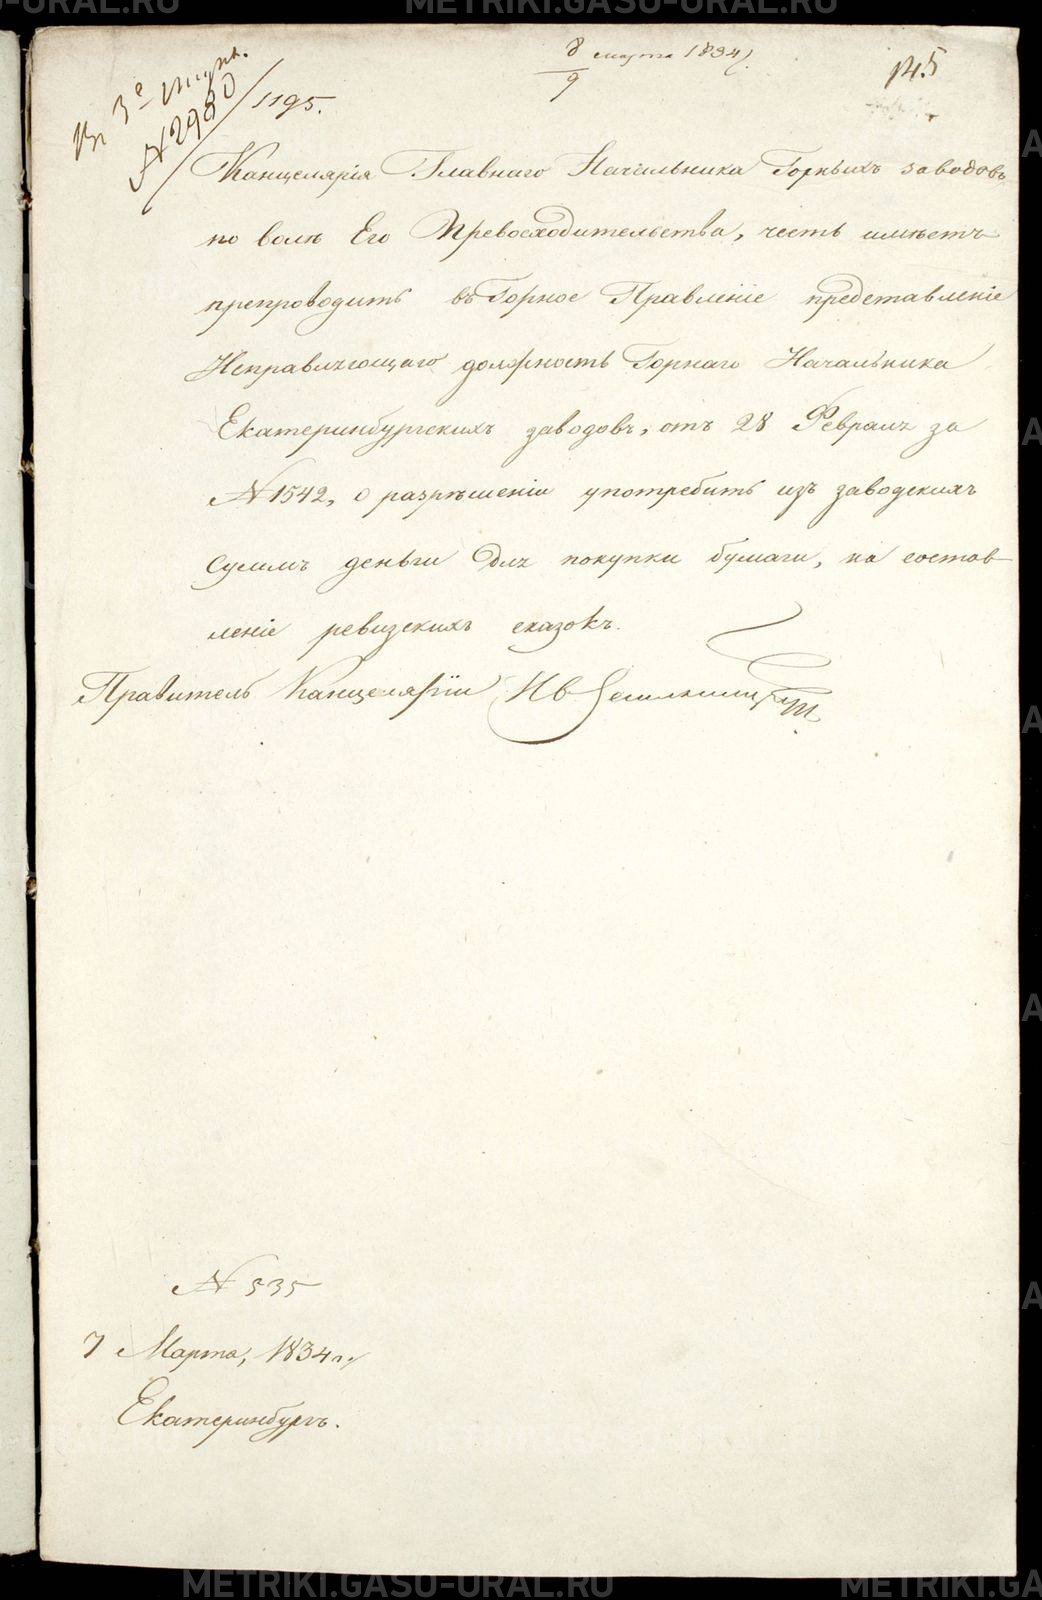 8 марта 1834 г.
9
145
В 3е
№ 2980
1195.
Канцелярія Главнаго Начальника Горныхъ заводовъ
по волѣ Его Превосходительства, честь имѣетъ
препроводить въ Горное Правленіе представленіе
Исправляющаго должность Горнаго Начальника
Екатеринбургскихъ заводовъ, отъ 28 Февраля за
№ 1542, о разрѣшеніи употребить изъ заводскихъ
суммъ деньги для покупки бумаги, на состав-
леніе ревизскихъ сказокъ.
Правитель Канцеляріи Ив.
№ 535
7 Марта, 1834 г.
Екатеринбургъ.
METRIKI.GASU-URAL.RU